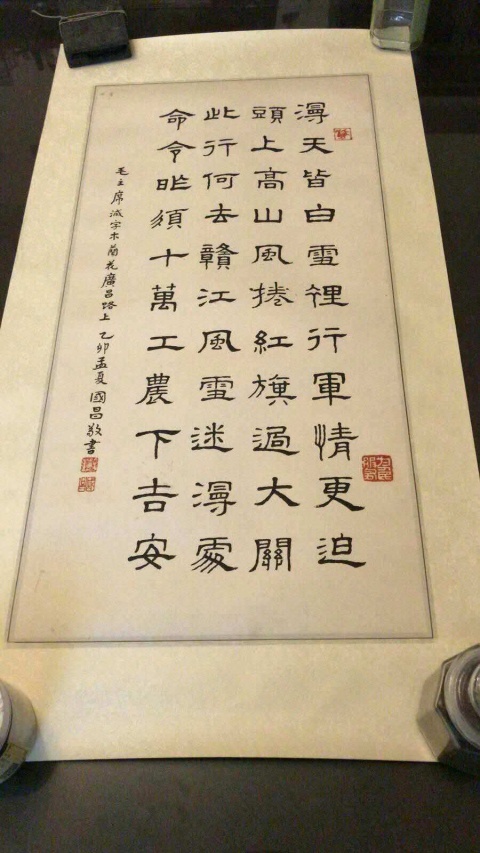 漫天皆白雪裡行軍情更迫
頭上高山風捲紅旗過大關
此行何去贛江風雪迷漫處
命令昨頒十萬工農下吉安
毛主席減字木蘭花廣昌路上 乙卯孟夏 國昌敬書